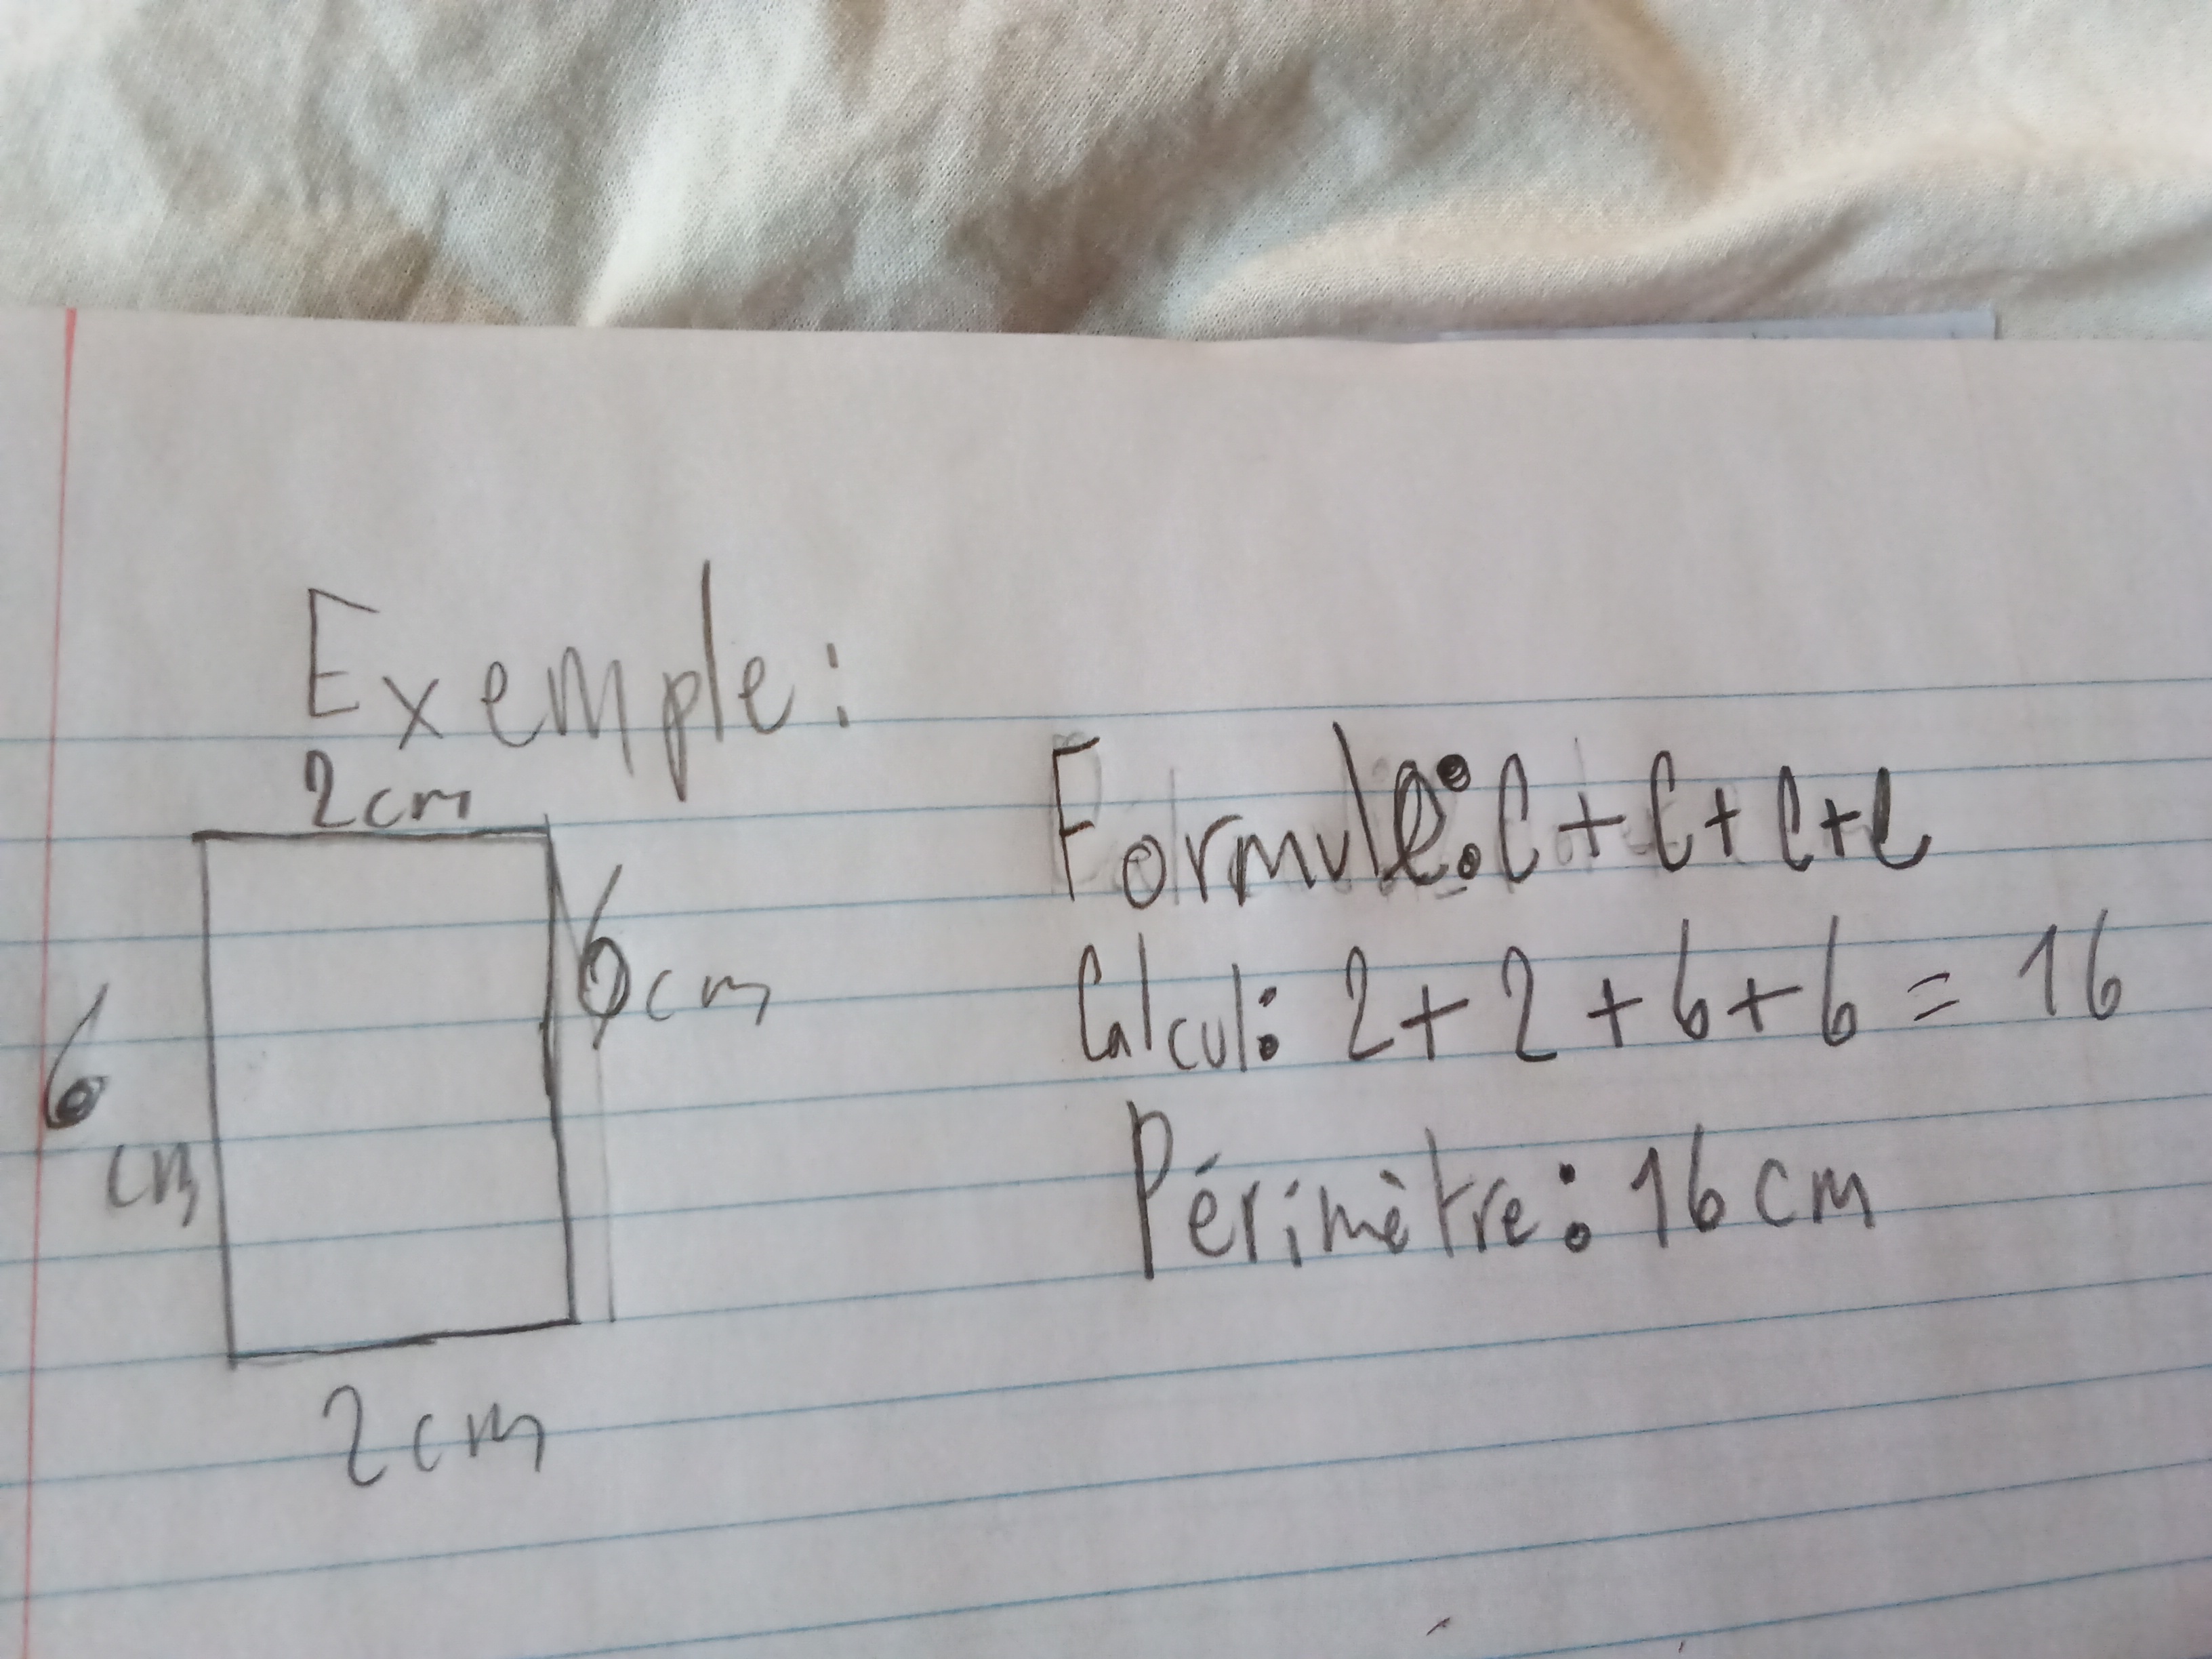 Exemple:
2cm
6cm
6
cm
2cm
Formule: C+C+C+C
Calcul: 2+2+6+6=16
Périmètre: 16cm